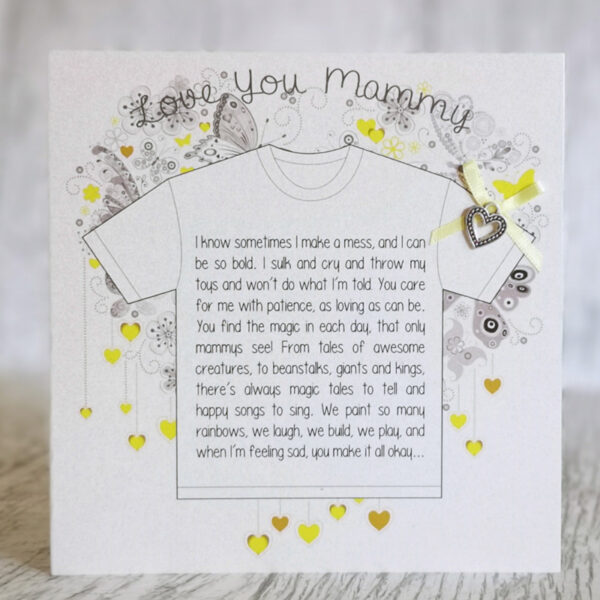 Love You Mammy
I know sometimes I make a mess, and I can
be so bold. I sulk and cry and throw my
toys and won't do what I'm told. You care
for me with patience, as loving as can be.
You find the magic in each day, that only
mammys see! From tales of awesome
creatures, to beanstalks, giants and kings,
there's always magic tales to tell and
happy songs to sing. We paint so many
rainbows, we laugh, we build, we play, and
when I'm feeling sad, you make it all okay...